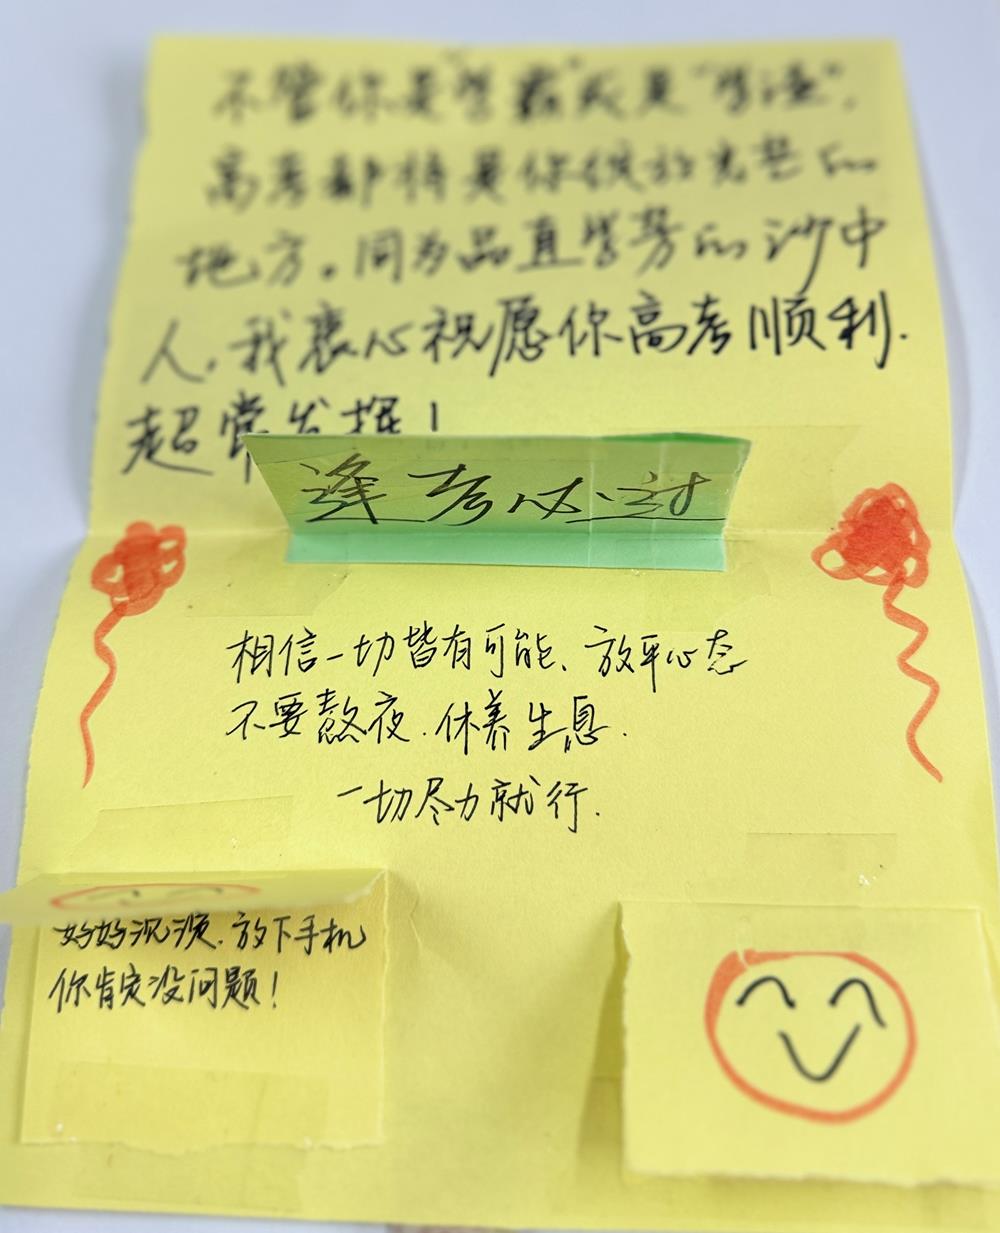 不管你是“学霸”或是“学渣”,
高考都将是你绽放光芒的
地方。同为品直学劳的沙中
人,我衷心祝愿你高考顺利.
超常发挥!
逢考必过
相信一切皆有可能、放平心态
不要熬夜.休养生息.
一切尽力就行.
好好沉淀.放下手机
你肯定没问题!